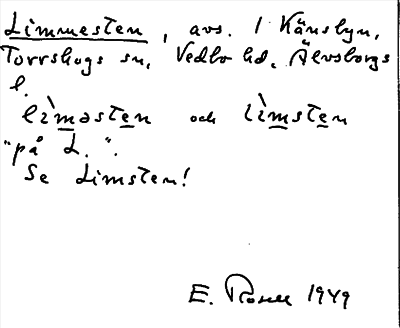 Limmesten, avs. 1 Känsbyn,
Torrskogs sn, Vedbo hd, Älvsborgs
l.
lìmesten och lìmsten
"på L.".
Se Limsten!
E. Rosell 1949